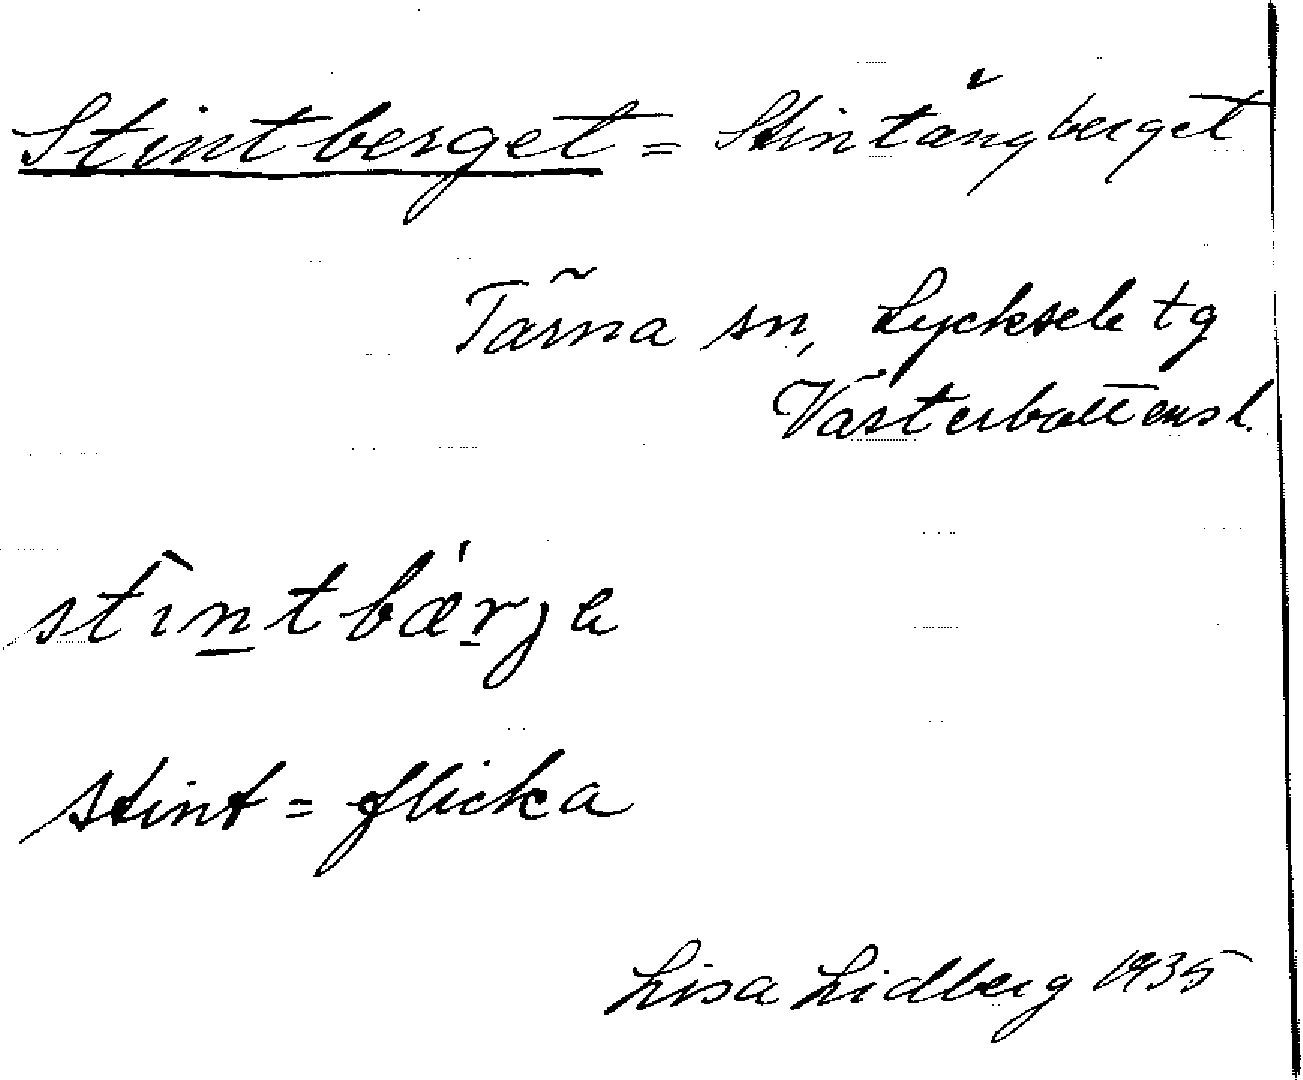 Stintberget = Stintångberget
Tärna sn, Lycksele tg
Västerbottens l.
stìntbæ̀rje
stint = flicka
Lisa Lidberg 1935